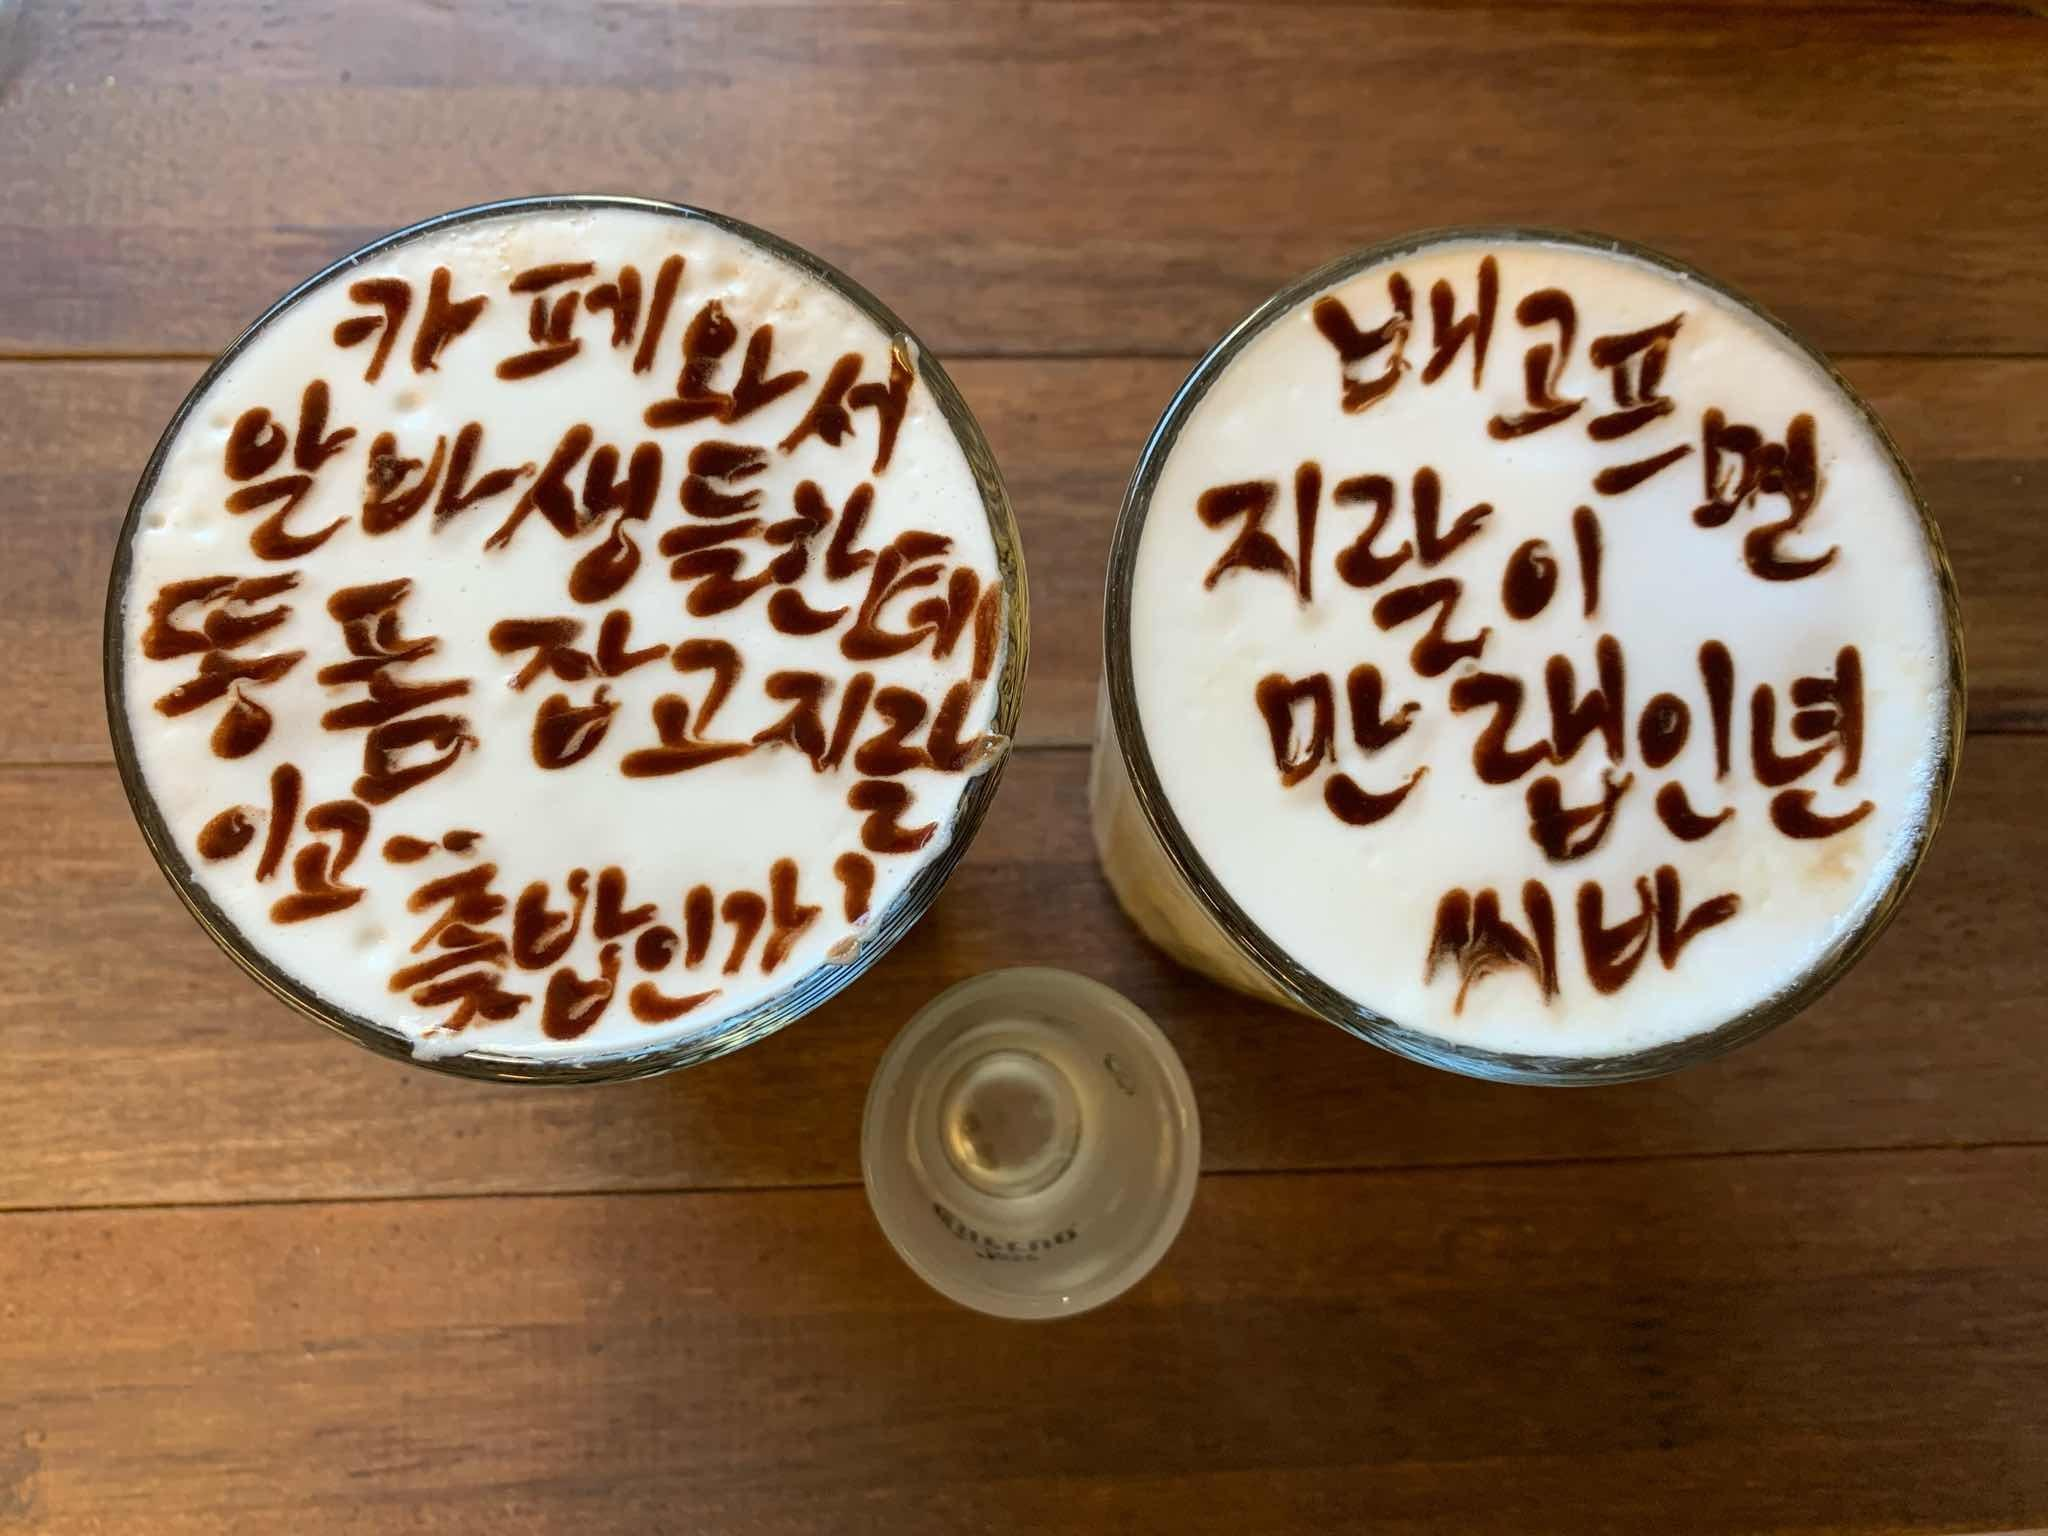 카페와서
알바생들한테
똥폼 잡고지랄
이고~
좆밥인가?
배고프면
지랄이
만랩인년
씨바